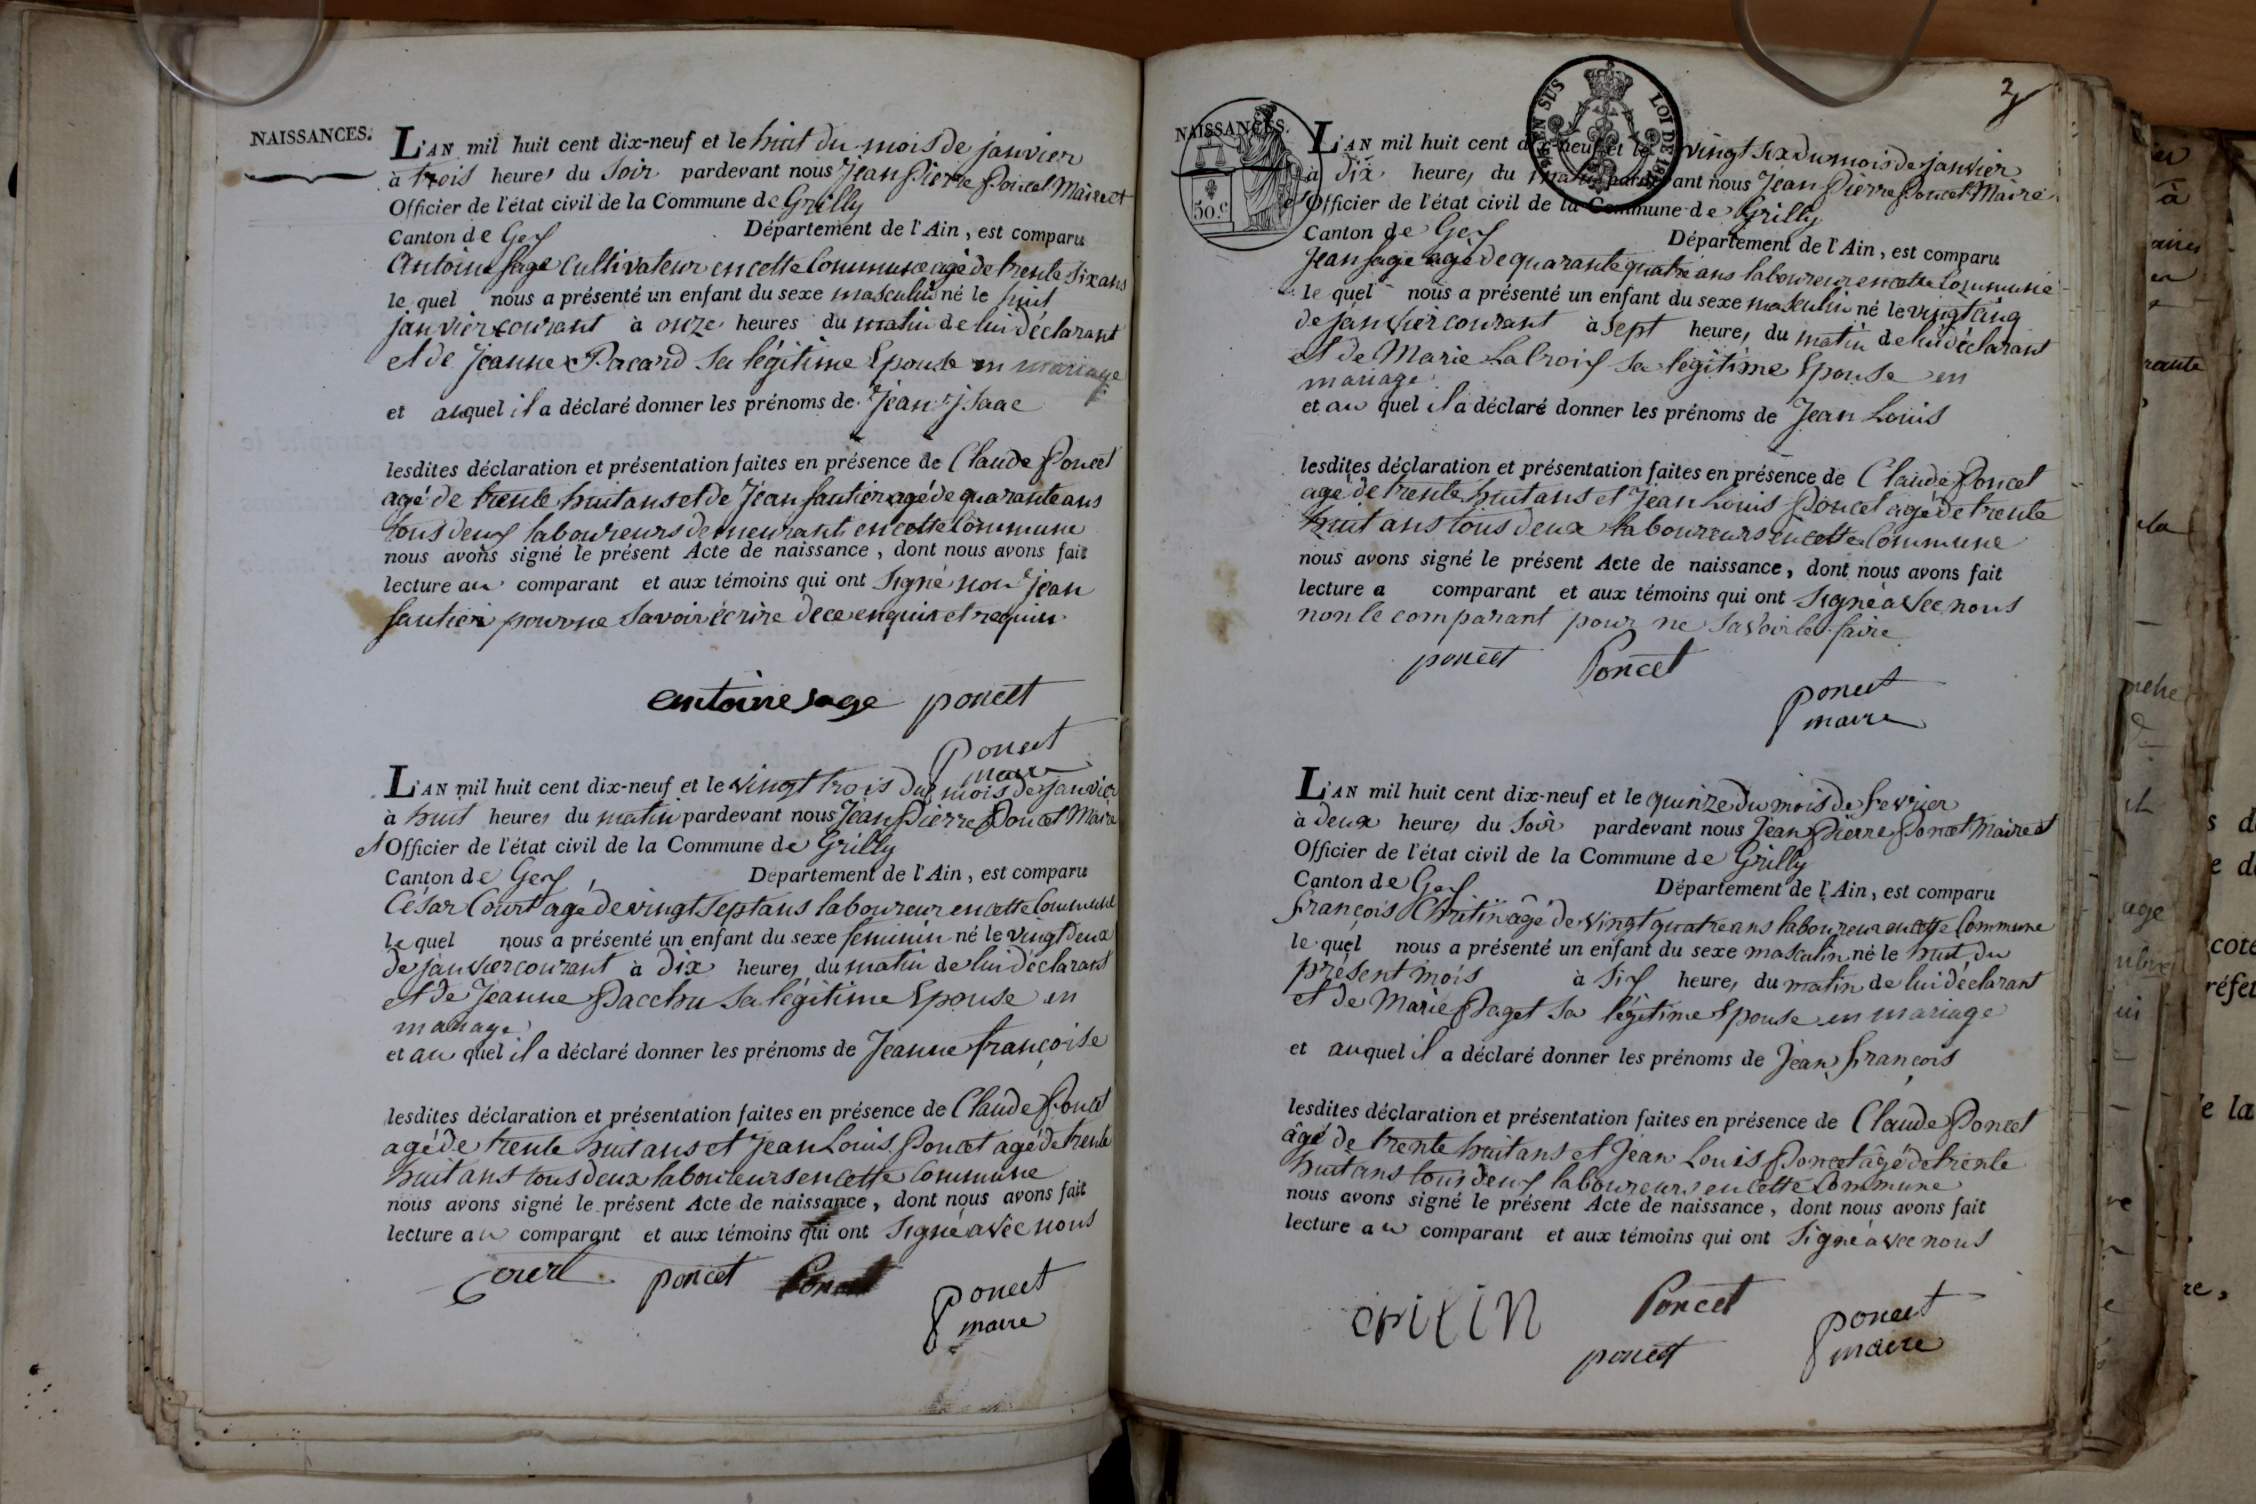 NAISSANCES.
L'AN mil huit cent dix-neuf et le huit du mois de janvier
à trois heures du soir pardevant nous Jean Pierre Poncet Maire et
Officier de l'état civil de la Commune de Grilly
Canton de Gex Département de l'Ain, est comparu
Antoine Sage Cultivateur en cette Commune agé de trente six ans
le quel nous a présenté un enfant du sexe masculin né le huit
janvier courant à onze heures du matin de lui déclarant
et de Jeanne Pacard sa légitime Epouse en mariage
et auquel il a déclaré donner les prénoms de Jean jsaac
lesdites déclaration et présentation faites en présence de Claude Poncet
agé de trente huit ans et de Jean Sautier agé de quarante ans
tous deux laboureurs demeurant en cette Commune
nous avons signé le présent Acte de naissance, dont nous avons fait
lecture au comparant et aux témoins qui ont signé non jean
Sautier pour ne savoir écrire de ce enquis et requis
antoine sage poncet
poncet
maire
L'AN mil huit cent dix-neuf et le vingt trois du mois de janvier
à huit heures du matin pardevant nous Jean Pierre Poncet Maire
et Officier de l'état civil de la Commune de Grilly
Canton de Gex, Département de l'Ain, est comparu
César Court agé de vingt sept ans laboureur en cette Commune
le quel nous a présenté un enfant du sexe feminin né le vingt deux
de janvier courant à dix heures du matin de lui déclarant
et de Jeanne Pacthu sa légitime Epouse en
mariage
et au quel il a déclaré donner les prénoms de Jeanne françoise
lesdites déclaration et présentation faites en présence de Claude Poncet
agé de trente huit ans et Jean Louis Poncet agé de trente
huit ans tous deux laboureurs en cette Commune
nous avons signé le présent Acte de naissance, dont nous avons fait
lecture au comparant et aux témoins qui ont signé avec nous
Court poncet Poncet
poncet
maire
2
NAISSANCES.
50.c
EN SUS LOI DE
L'AN mil huit cent dix-neuf et le vingt six du mois de janvier
à dix heures du matin pardevant nous Jean Pierre Poncet Maire
et Officier de l'état civil de la Commune de Grilly
Canton de Gex Département de l'Ain, est comparu
Jean Sage agé de quarante quatre ans laboureur en cette Commune
le quel nous a présenté un enfant du sexe masculin né le vingt cinq
de janvier courant à sept heures du matin de lui déclarant
et de Marie Lacroix sa légitime Epouse en
mariage
et au quel il a déclaré donner les prénoms de Jean Louis
lesdites déclaration et présentation faites en présence de Claude Poncet
agé de trente huit ans et Jean Louis Poncet agé de trente
huit ans tous deux laboureurs en cette Commune
nous avons signé le présent Acte de naissance, dont nous avons fait
lecture a comparant et aux témoins qui ont signé avec nous
non le comparant pour ne savoir le faire
poncet Poncet
poncet
maire
L'AN mil huit cent dix-neuf et le quinze du mois de fevrier
à deux heures du soir pardevant nous Jean Pierre Poncet Maire et
Officier de l'état civil de la Commune de Grilly
Canton de Gex Département de l'Ain, est comparu
françois Critin âgé de vingt quatre ans laboureur en cette Commune
le quel nous a présenté un enfant du sexe masculin né le huit du
présent mois à six heures du matin de lui déclarant
et de Marie Paget sa légitime Epouse en mariage
et auquel il a déclaré donner les prénoms de Jean françois
lesdites déclaration et présentation faites en présence de Claude Poncet
âgé de trente huit ans et Jean Louis Poncet âgé de trente
huit ans tous deux laboureurs en cette Commune
nous avons signé le présent Acte de naissance, dont nous avons fait
lecture au comparant et aux témoins qui ont signé avec nous
critin Poncet
poncet
poncet
maire